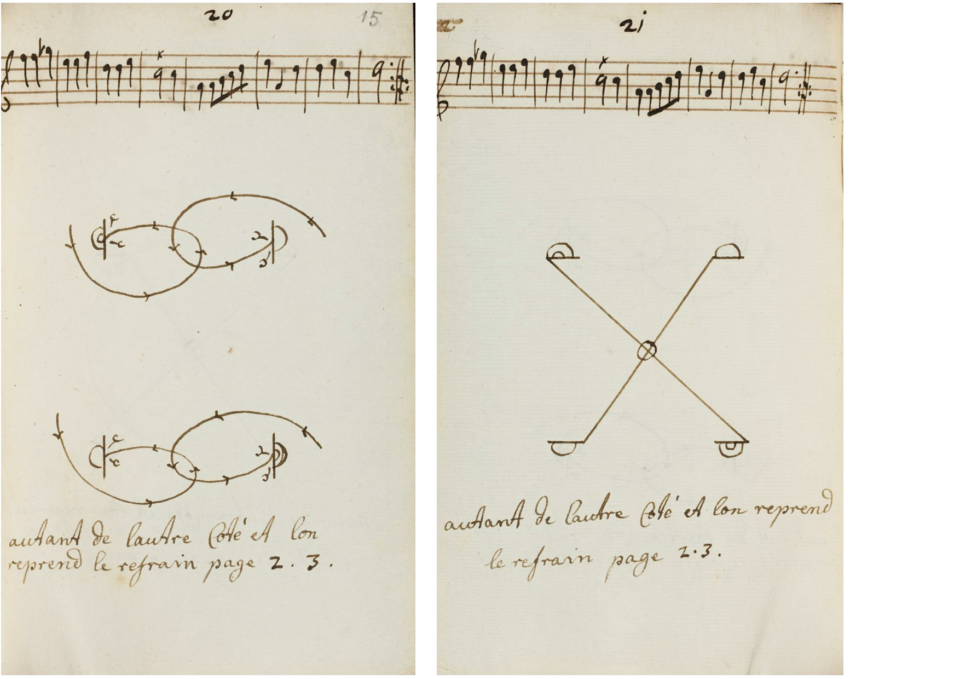 20
15
autant de lautre Coté et lon
reprend le refrain page 2. 3.
21
autant de lautre Coté et lon reprend
le refrain page 2.3.